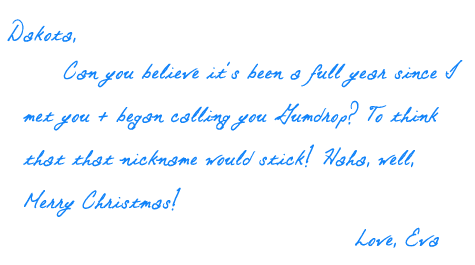 Dakota,
Can you believe it's been a full year since I
met you + began calling you Gumdrop? To think
that that nickname would stick! Haha, well,
Merry Christmas!
Love, Eva